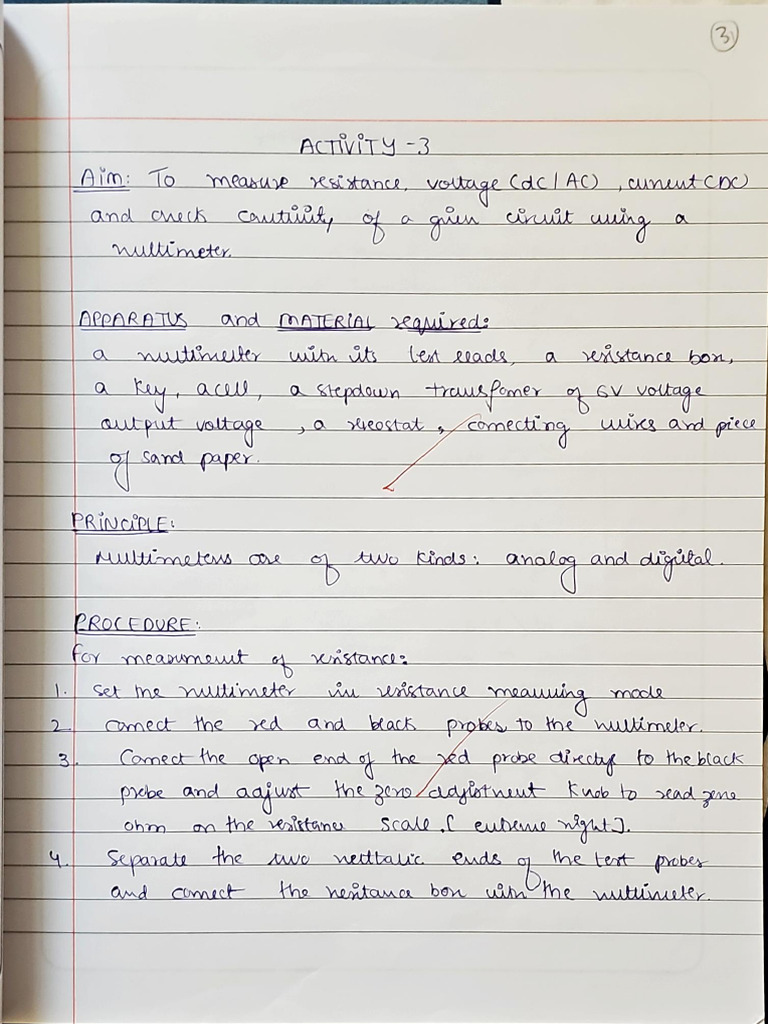 3
ACTIVITY -3
Aim: To measure resistance, voltage (dC / AC), current (DC)
and check continuity of a given circuit using a
multimeter.
APPARATUS and MATERIAL required:
a multimeter with its test leads, a resistance box,
a key, a cell, a stepdown transfomer of 6V voltage
output voltage , a reeostat, connecting wires and piece
of sand paper.
PRINCIPLE:
Multimeters are of two kinds: analog and digital.
PROCEDURE:
for measurement of resistance:
1. Set the multimeter in resistance measuring mode
2. connect the red and black probes to the multimeter.
3. Connect the open end of the red probe directly to the black
probe and adjust the zero adjistment knob to read zero
ohm on the resistance scale. [ extreme right].
4. Separate the two metttalic ends of the test probes
and connect the resistance box with the multimeter.